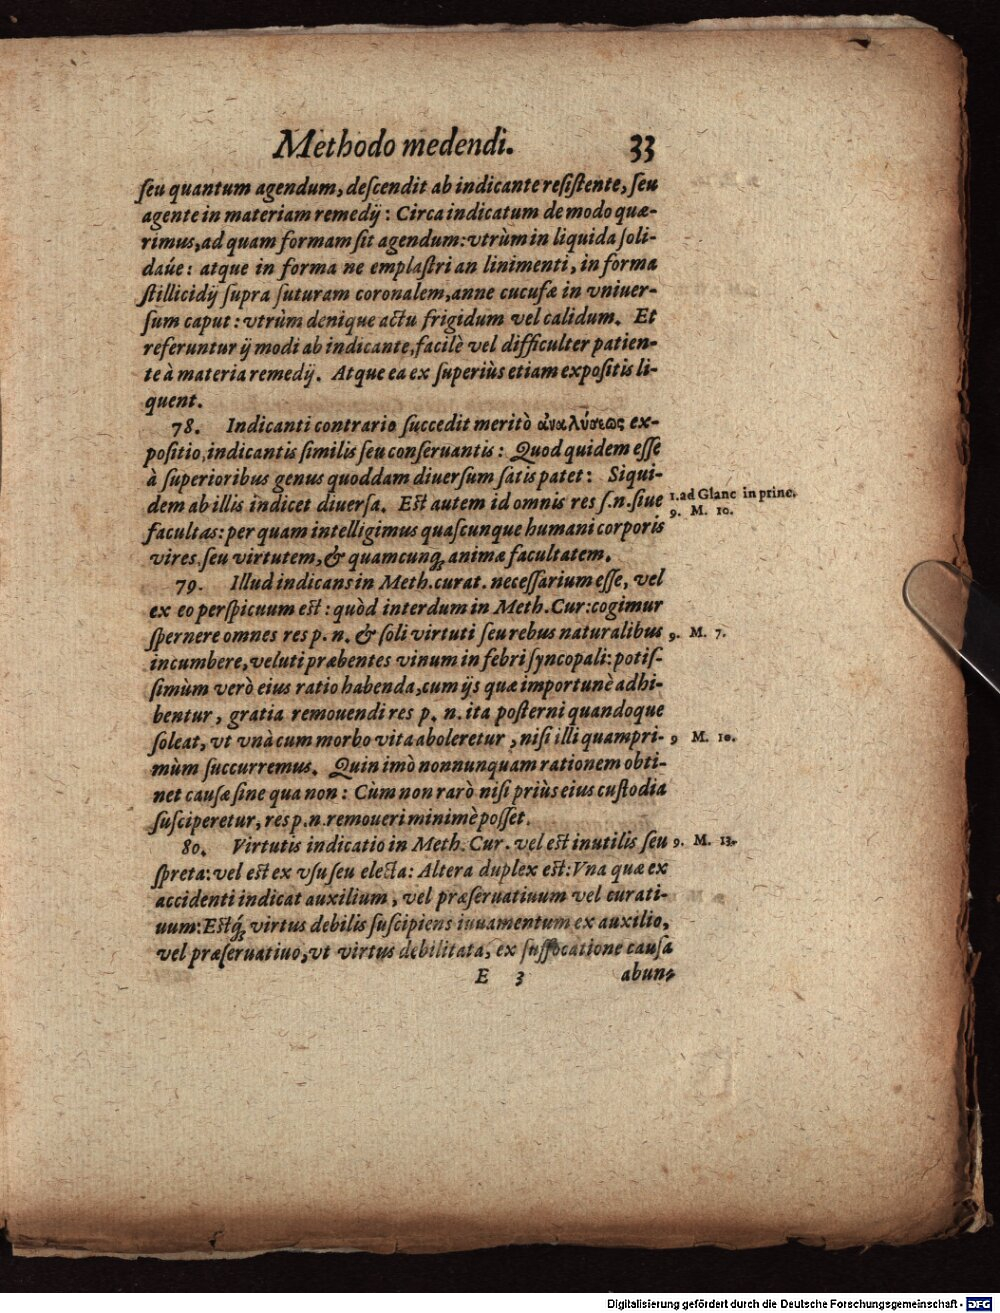 Methodo medendi. 33
ſeu quantum agendum, deſcendit ab indicante reſiſtente, ſeu
agente in materiam remedij: Circa indicatum de modo quæ-
rimus, ad quam formam ſit agendum: vtrùm in liquida ſoli-
dáue: atque in forma ne emplaſtri an linimenti, in forma
ſtillicidij ſupra ſuturam coronalem, anne cucufæ in vniuer-
ſum caput: vtrùm denique actu frigidum vel calidum. Et
referuntur ij modi ab indicante, facilè vel difficulter patien-
te à materia remedij. Atque ea ex ſuperiùs etiam expoſitis li-
quent.
78. Indicanti contrario ſuccedit meritò ἀναλύσεως ex-
poſitio, indicantis ſimilis ſeu conſeruantis: Quod quidem eſſe
à ſuperioribus genus quoddam diuerſum ſatis patet: Siqui-
dem ab illis indicet diuerſa. Eſt autem id omnis res ſ.n. ſiue
1. ad Glanc in princ.
9. M. 10.
facultas: per quam intelligimus quaſcunque humani corporis
vires, ſeu virtutem, & quamcunq; animæ facultatem.
79. Illud indicans in Meth. curat. neceſſarium eſſe, vel
ex eo perſpicuum eſt: quòd interdum in Meth. Cur: cogimur
ſpernere omnes res p. n. & ſoli virtuti ſeu rebus naturalibus
9. M. 7.
incumbere, veluti præbentes vinum in febri ſyncopali: potiſ-
ſimùm verò eius ratio habenda, cum ijs quæ importunè adhi-
bentur, gratia remouendi res p. n. ita poſterni quandoque
ſoleat, vt vnà cum morbo vita aboleretur, niſi illi quampri-
9 M. 10.
mùm ſuccurremus. Quin imò nonnunquam rationem obti-
net cauſæ ſine qua non: Cùm non rarò niſi priùs eius cuſtodia
ſuſciperetur, res p.n. remoueri minimè poſſet.
80. Virtutis indicatio in Meth. Cur. vel eſt inutilis ſeu
9. M. 13.
ſpreta: vel eſt ex vſu ſeu electa: Altera duplex eſt: Vna quæ ex
accidenti indicat auxilium, vel præſeruatiuum vel curati-
uum: Eſtq́; virtus debilis ſuſcipiens iuuamentum ex auxilio,
vel præſeruatiuo, vt virtus debilitata, ex ſuffocatione cauſa
E 3 abun-
Digitalisierung gefördert durch die Deutsche Forschungsgemeinschaft - DFG